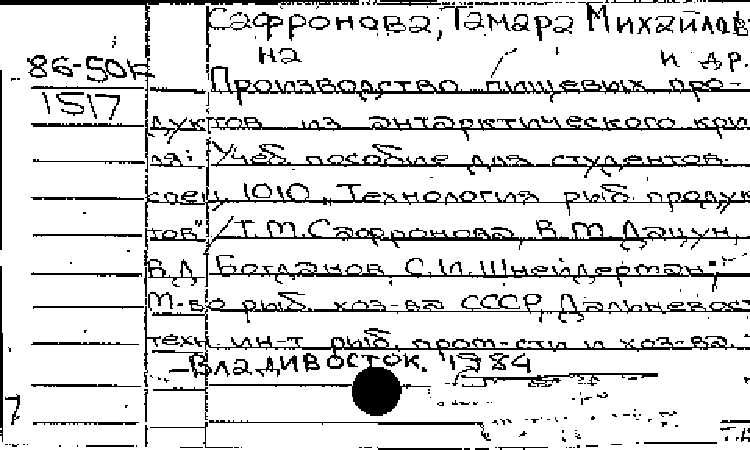 Сафронова, Тамара Михайлов
на
и др.
86-50к
1517
Производство пищевых про-
дуктов из антарктического кри
ля: Учеб пособие для студентов
спец. 1010 „Технология рыб продук
тов" / Т.М. Сафронова, В.М. Дацун,
В.Д. Богданов, С.И. Шнейдерман;
М-во рыб. хоз-ва СССР, Дальневост
техн. ин-т рыб. пром-сти и хоз-ва.
—Владивосток, 1984